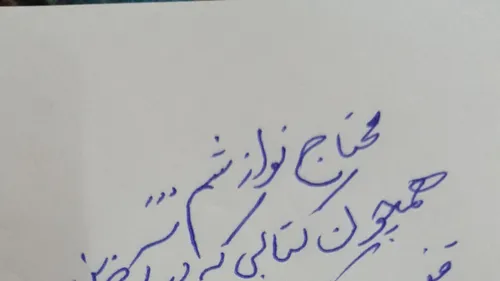 محتاج نوازشم ...
همچون کتابی که در